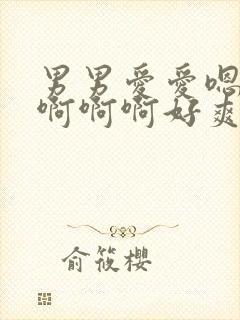 男男愛愛嗯
啊啊啊好爽
俞筱櫻